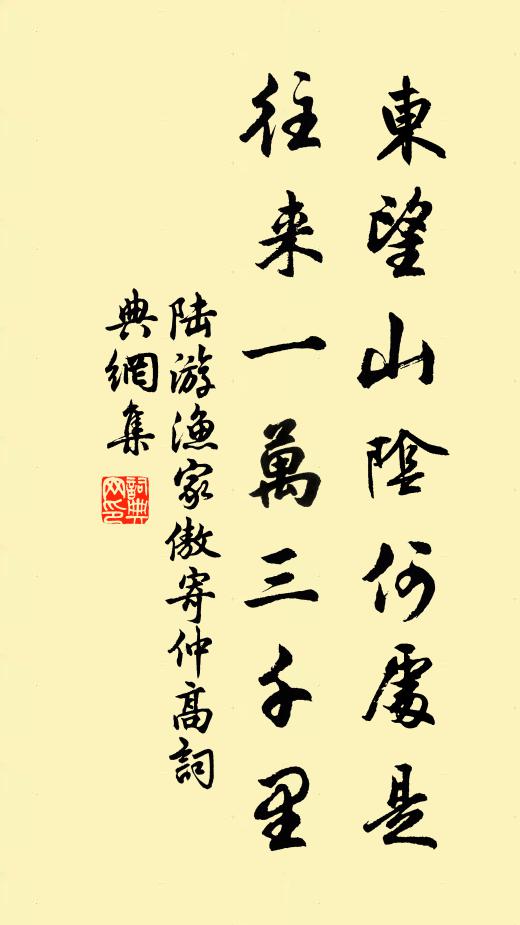 東望山陰何處是
往来一萬三千里
陆游漁家傲寄仲高詞
典網集
詞典网印